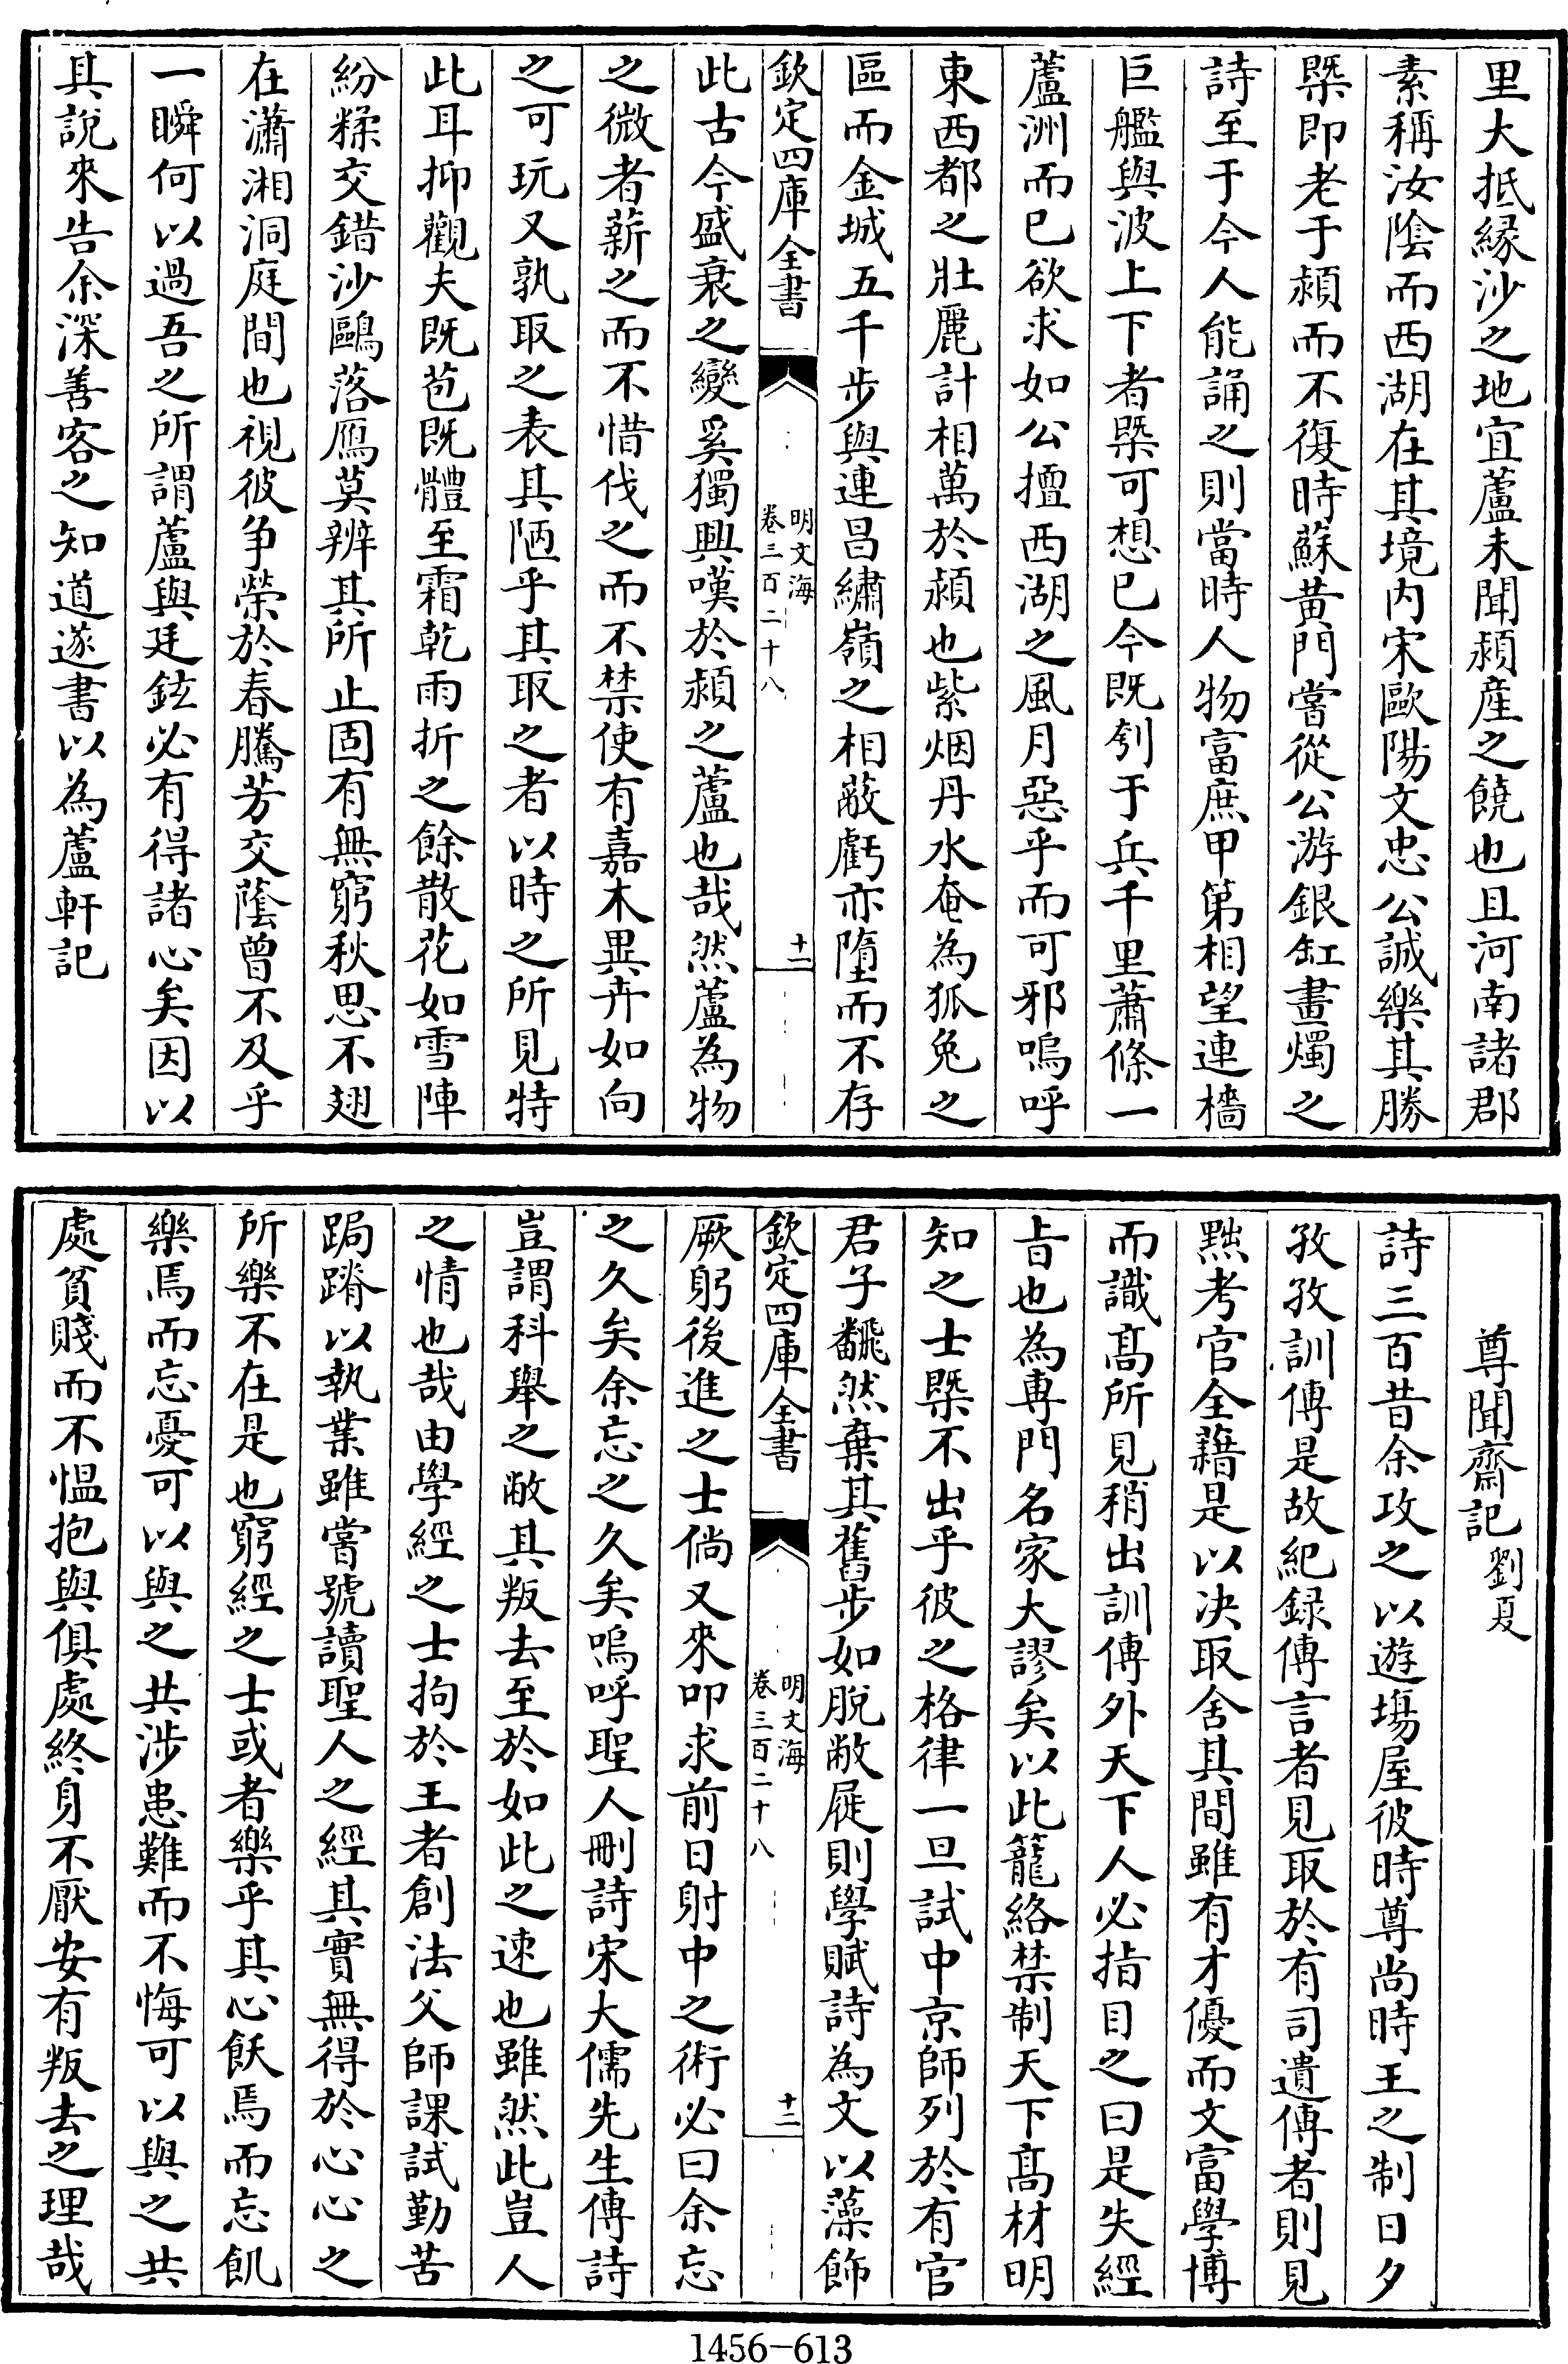 里大抵緣沙之地宜蘆未聞潁産之饒也且河南諸郡
素稱汝隂而西湖在其境内宋歐陽文忠公誠樂其勝
槩即老于潁而不復時蘇黄門嘗從公游銀缸畫燭之
詩至于今人能誦之則當時人物富庶甲第相望連檣
巨艦與波上下者槩可想已今既刳于兵千里蕭條一
蘆洲而已欲求如公擅西湖之風月惡乎而可邪嗚呼
東西都之壯麗計相萬於潁也紫烟丹水奄為狐兔之
區而金城五千步與連昌繡嶺之相蔽虧亦墮而不存
欽定四庫全書
明文海
卷三百二十八
十一
此古今盛衰之變奚獨興嘆於潁之蘆也哉然蘆為物
之微者薪之而不惜伐之而不禁使有嘉木異卉如向
之可玩又孰取之表其陋乎其取之者以時之所見特
此耳抑觀夫既苞既體至霜乾雨折之餘散花如雪陣
紛糅交錯沙鷗落鴈莫辨其所止固有無窮秋思不翅
在瀟湘洞庭間也視彼争榮於春騰芳交蔭曾不及乎
一瞬何以過吾之所謂蘆與廷鉉必有得諸心矣因以
其說來告余深善客之知道遂書以為蘆軒記
尊聞齋記 劉夏
詩三百昔余攻之以遊塲屋彼時尊尚時王之制日夕
孜孜訓傳是故紀録傳言者見取於有司遺傳者則見
黜考官全藉是以决取舍其間雖有才優而文富學博
而識髙所見稍出訓傳外天下人必指目之曰是失經
㫖也為専門名家大謬矣以此籠絡禁制天下髙材明
知之士槩不出乎彼之格律一旦試中京師列於有官
君子飜然棄其舊步如脫敝屣則學賦詩為文以藻飾
欽定四庫全書
明文海
卷三百二十八
十二
厥躬後進之士倘又來叩求前日射中之術必曰余忘
之久矣余忘之久矣嗚呼聖人刪詩宋大儒先生傳詩
豈謂科舉之敝其叛去至於如此之速也雖然此豈人
之情也哉由學經之士拘於王者創法父師課試勤苦
跼蹐以執業雖嘗號讀聖人之經其實無得於心心之
所樂不在是也窮經之士或者樂乎其心飫焉而忘飢
樂焉而忘憂可以與之共涉患難而不悔可以與之共
處貧賤而不愠抱與俱處終身不厭安有叛去之理哉
1456-613